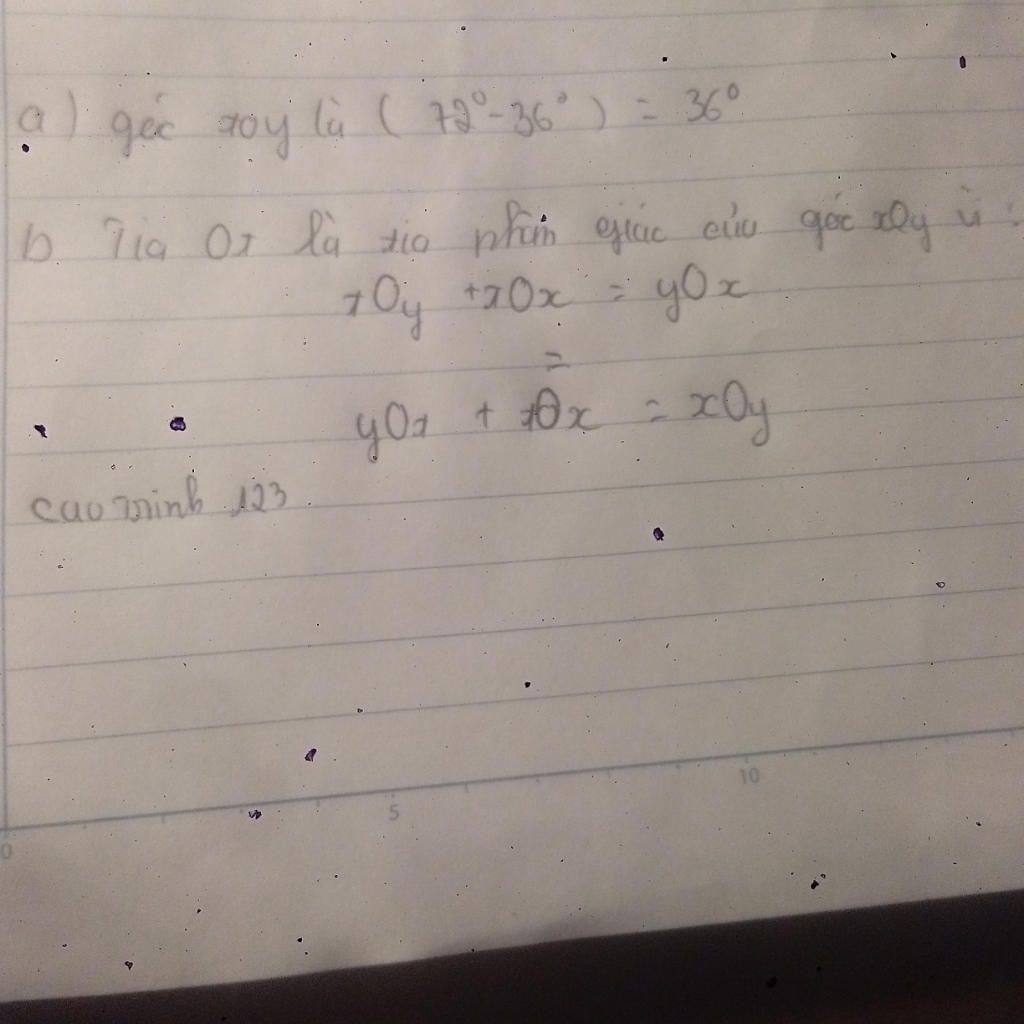 a) góc tOy là ( 72° - 36° ) = 36°
b. Tia Ot là tia phân giác của góc xOy vì :
tOy + tOx = yOx
=
yOt + tOx = xOy
cao minh 123
5
10
0